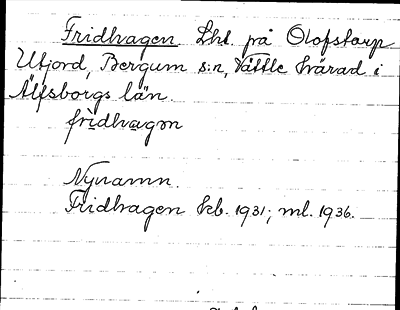 Fridhagen Lht. på Olofstorp
Utjord, Bergum s:n, Vättle härad i
Älfsborgs län.
fridhagən
Nynamn.
Fridhagen kb. 1931; ml. 1936.